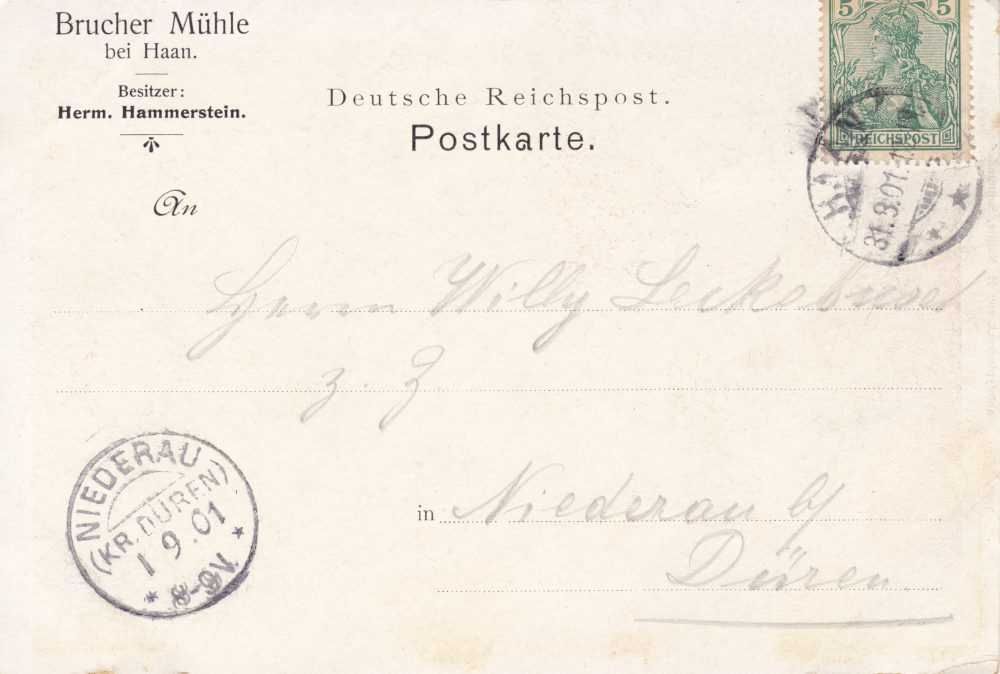 Brucher Mühle
bei Haan.
Besitzer:
Herm. Hammerstein.
Deutsche Reichspost.
Postkarte.
5 5
REICHSPOST
HAAN
31.8.01.
An
Herrn Willy Leckebusch
z. Z.
in Niederau b/
Düren
(NIEDERAU
(KR. DÜREN)
1 9. 01
* 8-9V. *